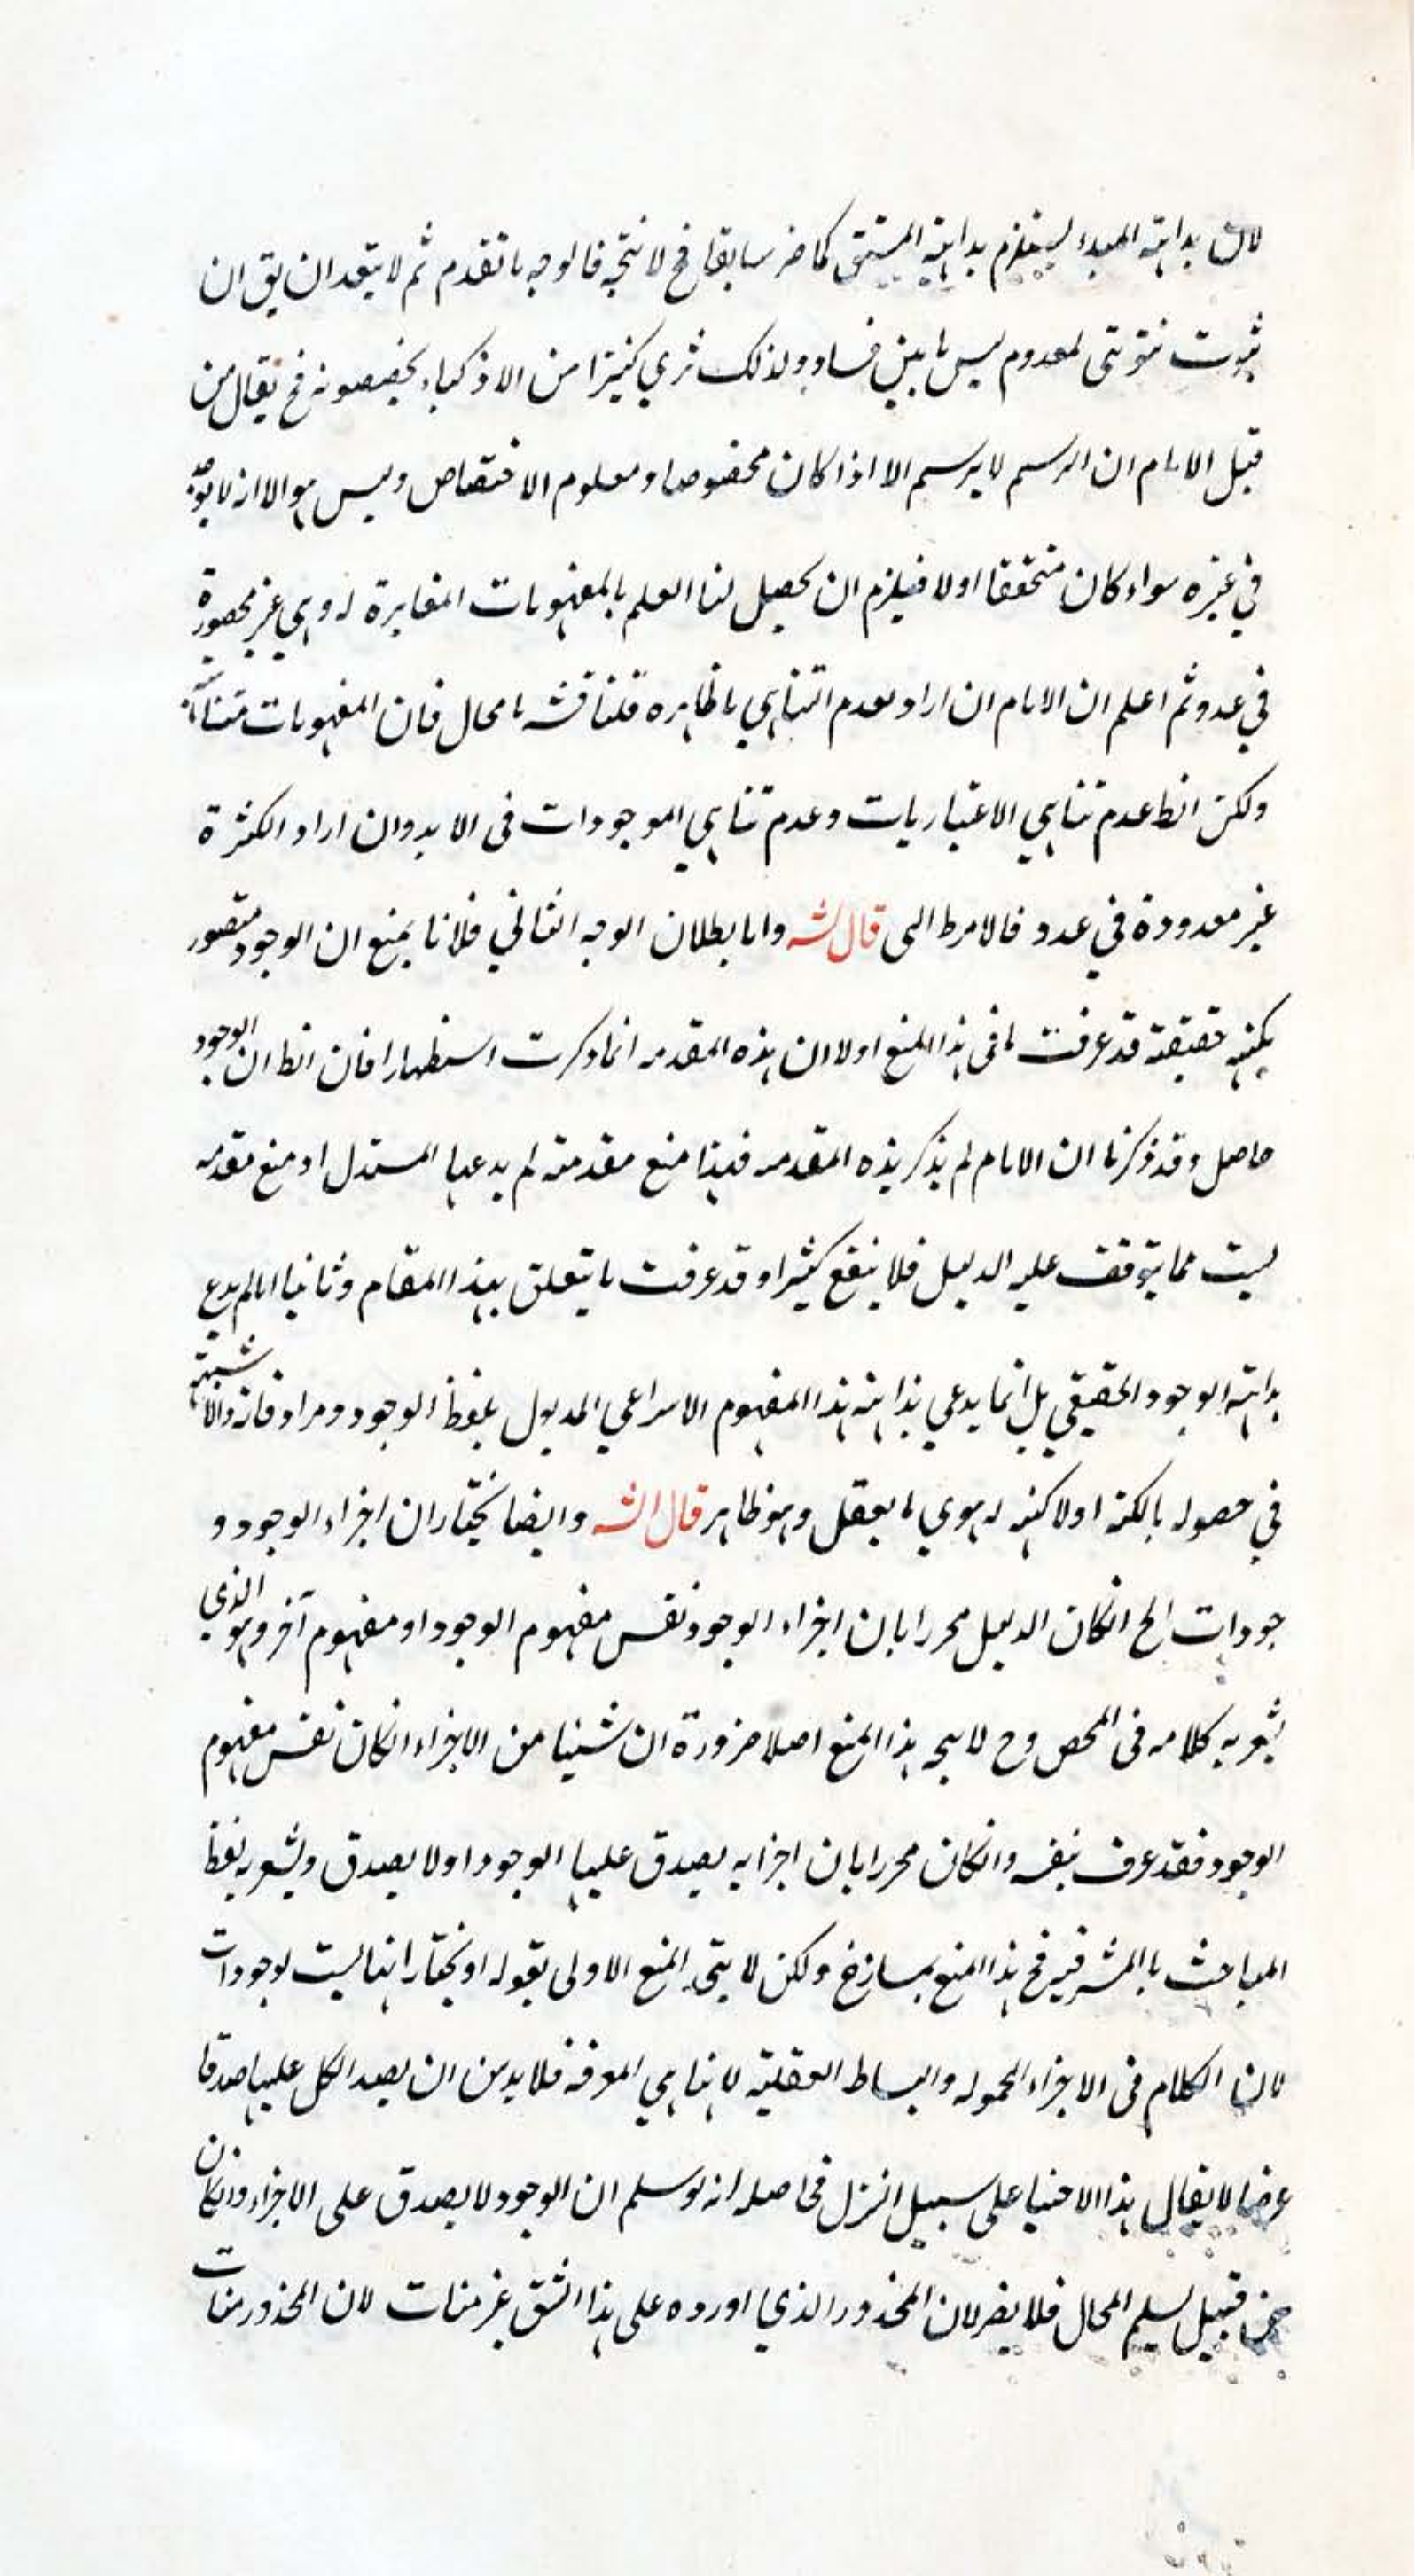 لان بداهته المبدء يستلزم بداهته المشتق كما مر سابقا فح لا نتجه فالوجه ما تقدم ثم لا يبعد ان يق ان
ثبوت لمعدوم ليس ما بين فساده ولذلك ترى كثيرا من الاذكياء يخصصونه فح يقال من
قبل الامام ان الرسم لا يرسم الا اذا كان مخصوصا ومعلوم الاختصاص وليس هو الا انه لا يوجد
في غيره سواء كان متحققا اولا فيلزم ان يحصل لنا العلم بالمفهومات المغايرة له وهي غير محصورة
في عدد ثم اعلم ان الامام ان اراد بعدم التناهي ما ظاهره فلنا قشه مامحال فان المفهومات متناهية
ولكن الظ عدم تناهي الاعتباريات وعدم تناهي الموجودات في الابد وان اراد الكثرة
غير معدودة في عدد فالامر ط الى قال الش واما بطلان الوجه الثاني فلانا نمنع ان الوجود متصور
بكنهه حقيقته قد عرفت ما في هذا المنع اولا ان هذه المقدمه انما ذكرت استظهارا فان الظ ان الوجود
حاصل وقد ذكرنا ان الامام لم يذكر هذه المقدمه فهذا منع مقدمته لم يدعها المستدل او منع مقدمه
ليست مما يتوقف عليه الدليل فلا ينفع كثيرا وقد عرفت ما يتعلق بهذا المقام وثانيا انا لم ندع
بداهته الوجود الحقيقي بل انما يدعي بداهته هذا المفهوم الانتزاعي المدلول بلفظ الوجود ومرادفاته ولا شبهة
في حصوله بالكنه اولا كنه له سوي ما يعقل وهو ظاهر قال الش وايضا نختار ان اجزاء الوجود و
جودات الخ انكان الدليل محررا بان اجزاء الوجود نفس مفهوم الوجود او مفهوم آخر وهو الذي
يشعر به كلامه في المخص وح لا يتجه هذا المنع اصلا ضرورة ان شيئا من الاجزاء انكان نفس مفهوم
الوجود فقد عرف بنفسه وانكان محررا بان اجزايه يصدق عليها الوجود اولا يصدق ويشعر به لفظ
المباحث المشرقيه فح هذا المنع ولكن لا يتجه المنع الاولى بقوله او نختار انها ليست بوجودات
لان الكلام في الاجزاء المحموله والبساط العقلية لانها هي المعرفه فلا بد من ان يصدق الكل عليها صدقا
عرضيا لا يقال هذا الاختيار على سبيل التنزل فحاصله انه لو سلم ان الوجود لا يصدق على الاجزاء وانكان
من قبيل تسليم المحال فلا يضر لان المحذور الذي اورده على هذا الشق غير منات لان المحذور منات